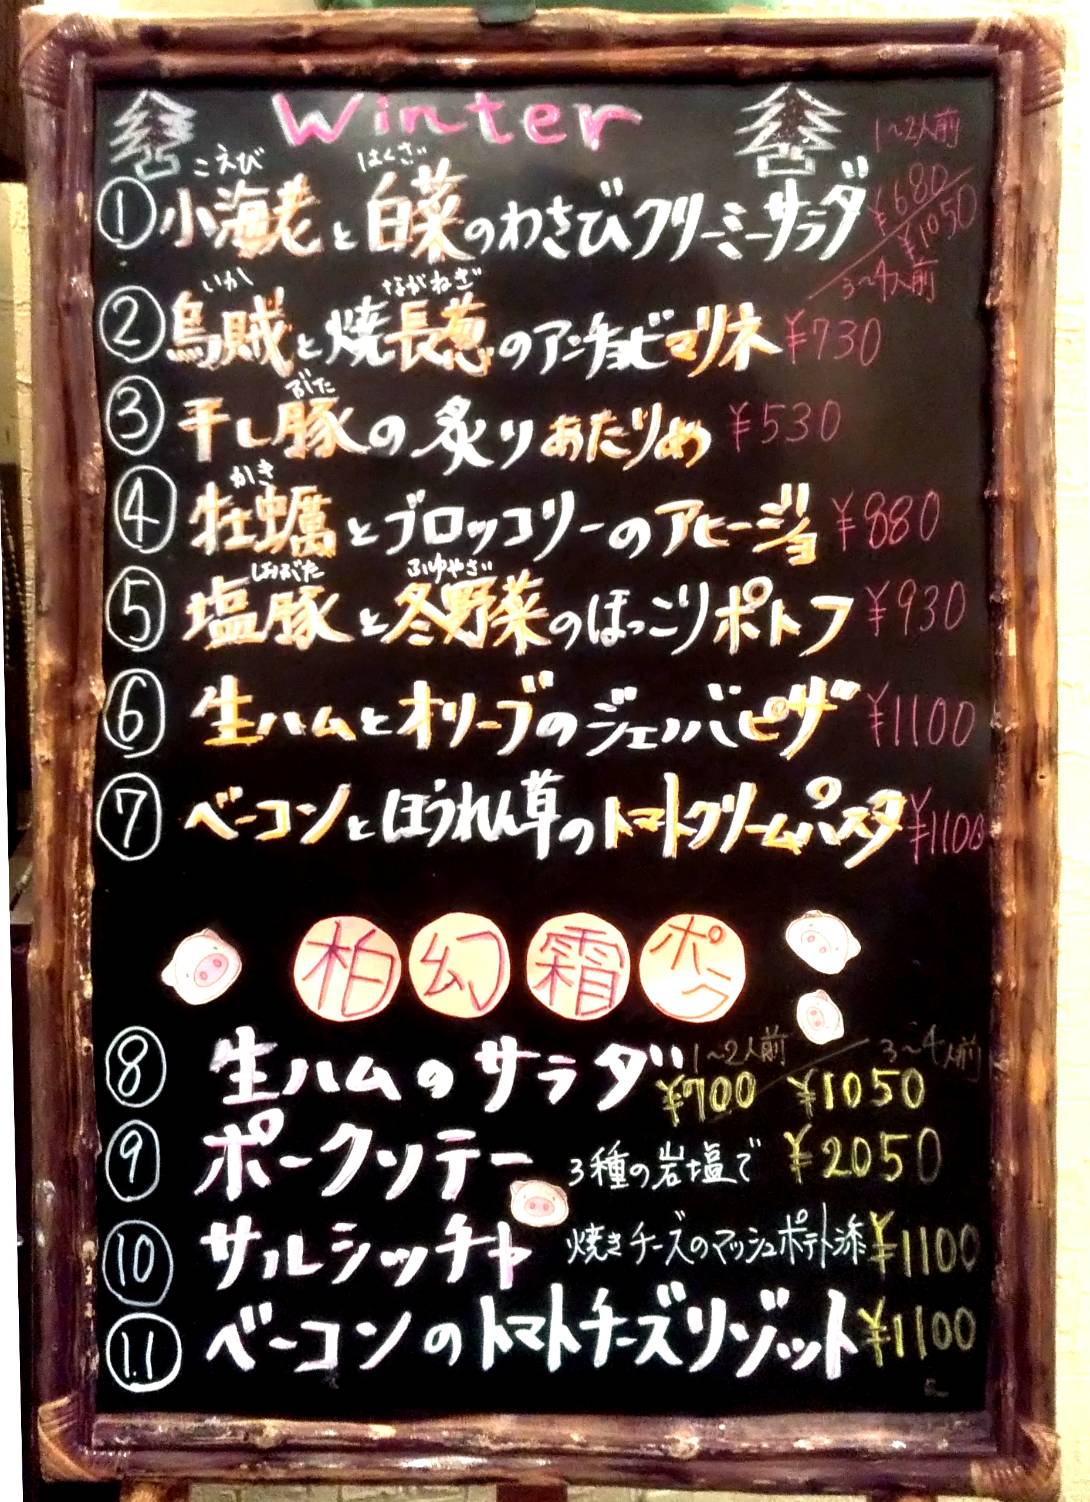 Winter
1~2人前
こえび はくさい
① 小海老と白菜のわさびクリーミーサラダ ¥680/¥1050
3~4人前
いか ながねぎ
② 烏賊と焼長葱のアンチョビマリネ ¥730
ぶた
③ 干し豚の炙りあたりめ ¥530
かき
④ 牡蠣とブロッコリーのアヒージョ ¥880
しおぶた ふゆやさい
⑤ 塩豚と冬野菜のほっこりポトフ ¥930
⑥ 生ハムとオリーブのジェノバピザ ¥1100
⑦ ベーコンとほうれん草のトマトクリームパスタ ¥1100
柏幻霜ポーク
1~2人前 / 3~4人前
⑧ 生ハムのサラダ ¥700 ¥1050
⑨ ポークソテー 3種の岩塩で ¥2050
⑩ サルシッチャ 焼きチーズのマッシュポテト添 ¥1100
⑪ ベーコンのトマトチーズリゾット ¥1100